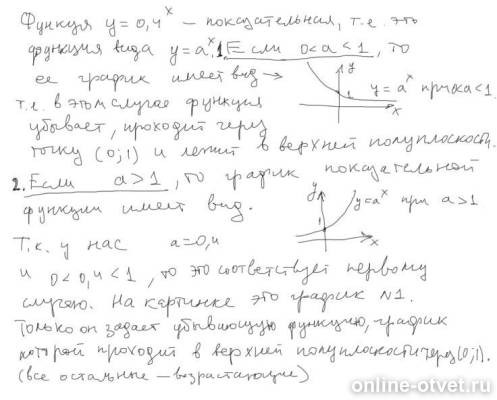 Функция y = 0,4^x – показательная, т.е. это
функция вида y = a^x. 1. Если 0<a<1, то
ее график имеет вид →
y
y = a^x при 0<a<1.
x
т.е. в этом случае функция
убывает, проходит через
точку (0;1) и лежит в верхней полуплоскости.
2. Если a>1, то график показательной
функции имеет вид.
y
y=a^x при a>1
1
x
Т.к. у нас a=0,4
и 0<0,4<1, то это соответствует первому
случаю. На картинке это график N1.
Только он задает убывающую функцию, график
которой проходит в верхней полуплоскости через (0;1).
(все остальные – возрастающие)
online-otvet.ru